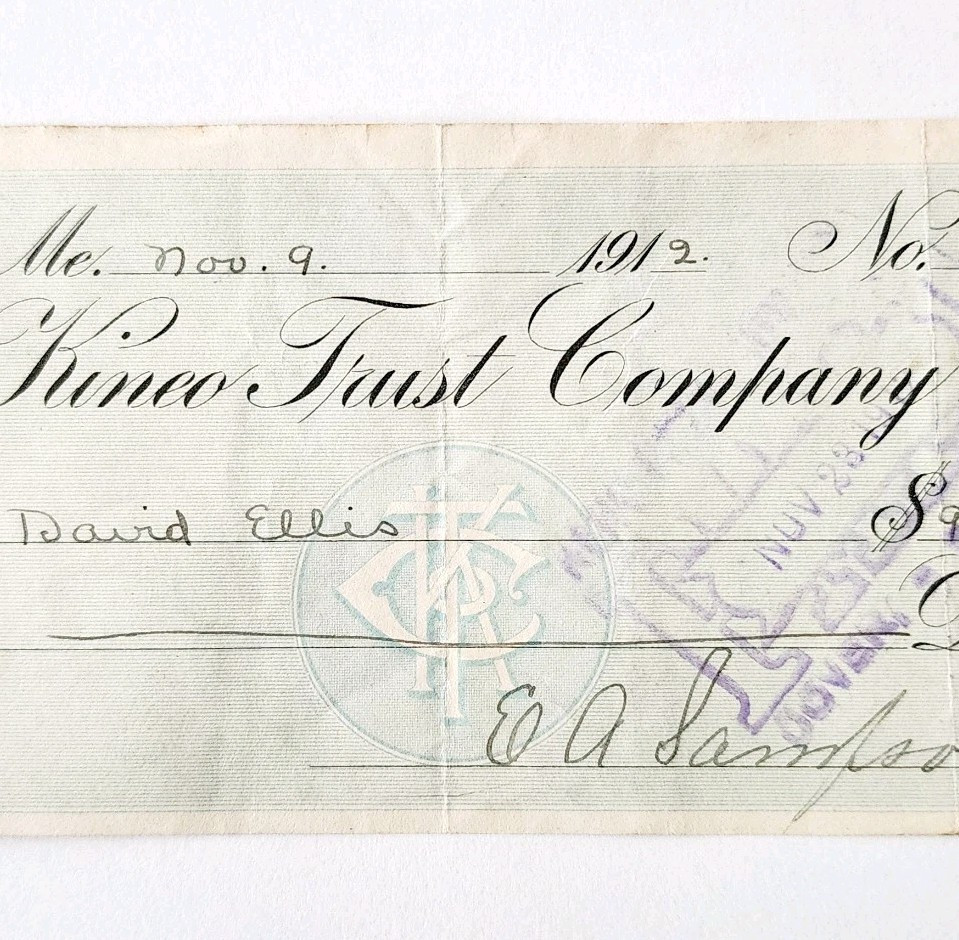 Me. Nov. 9. 1912. No.
Kineo Trust Company
David Ellis $9
E A Sampso
NOV 23
DOVER,